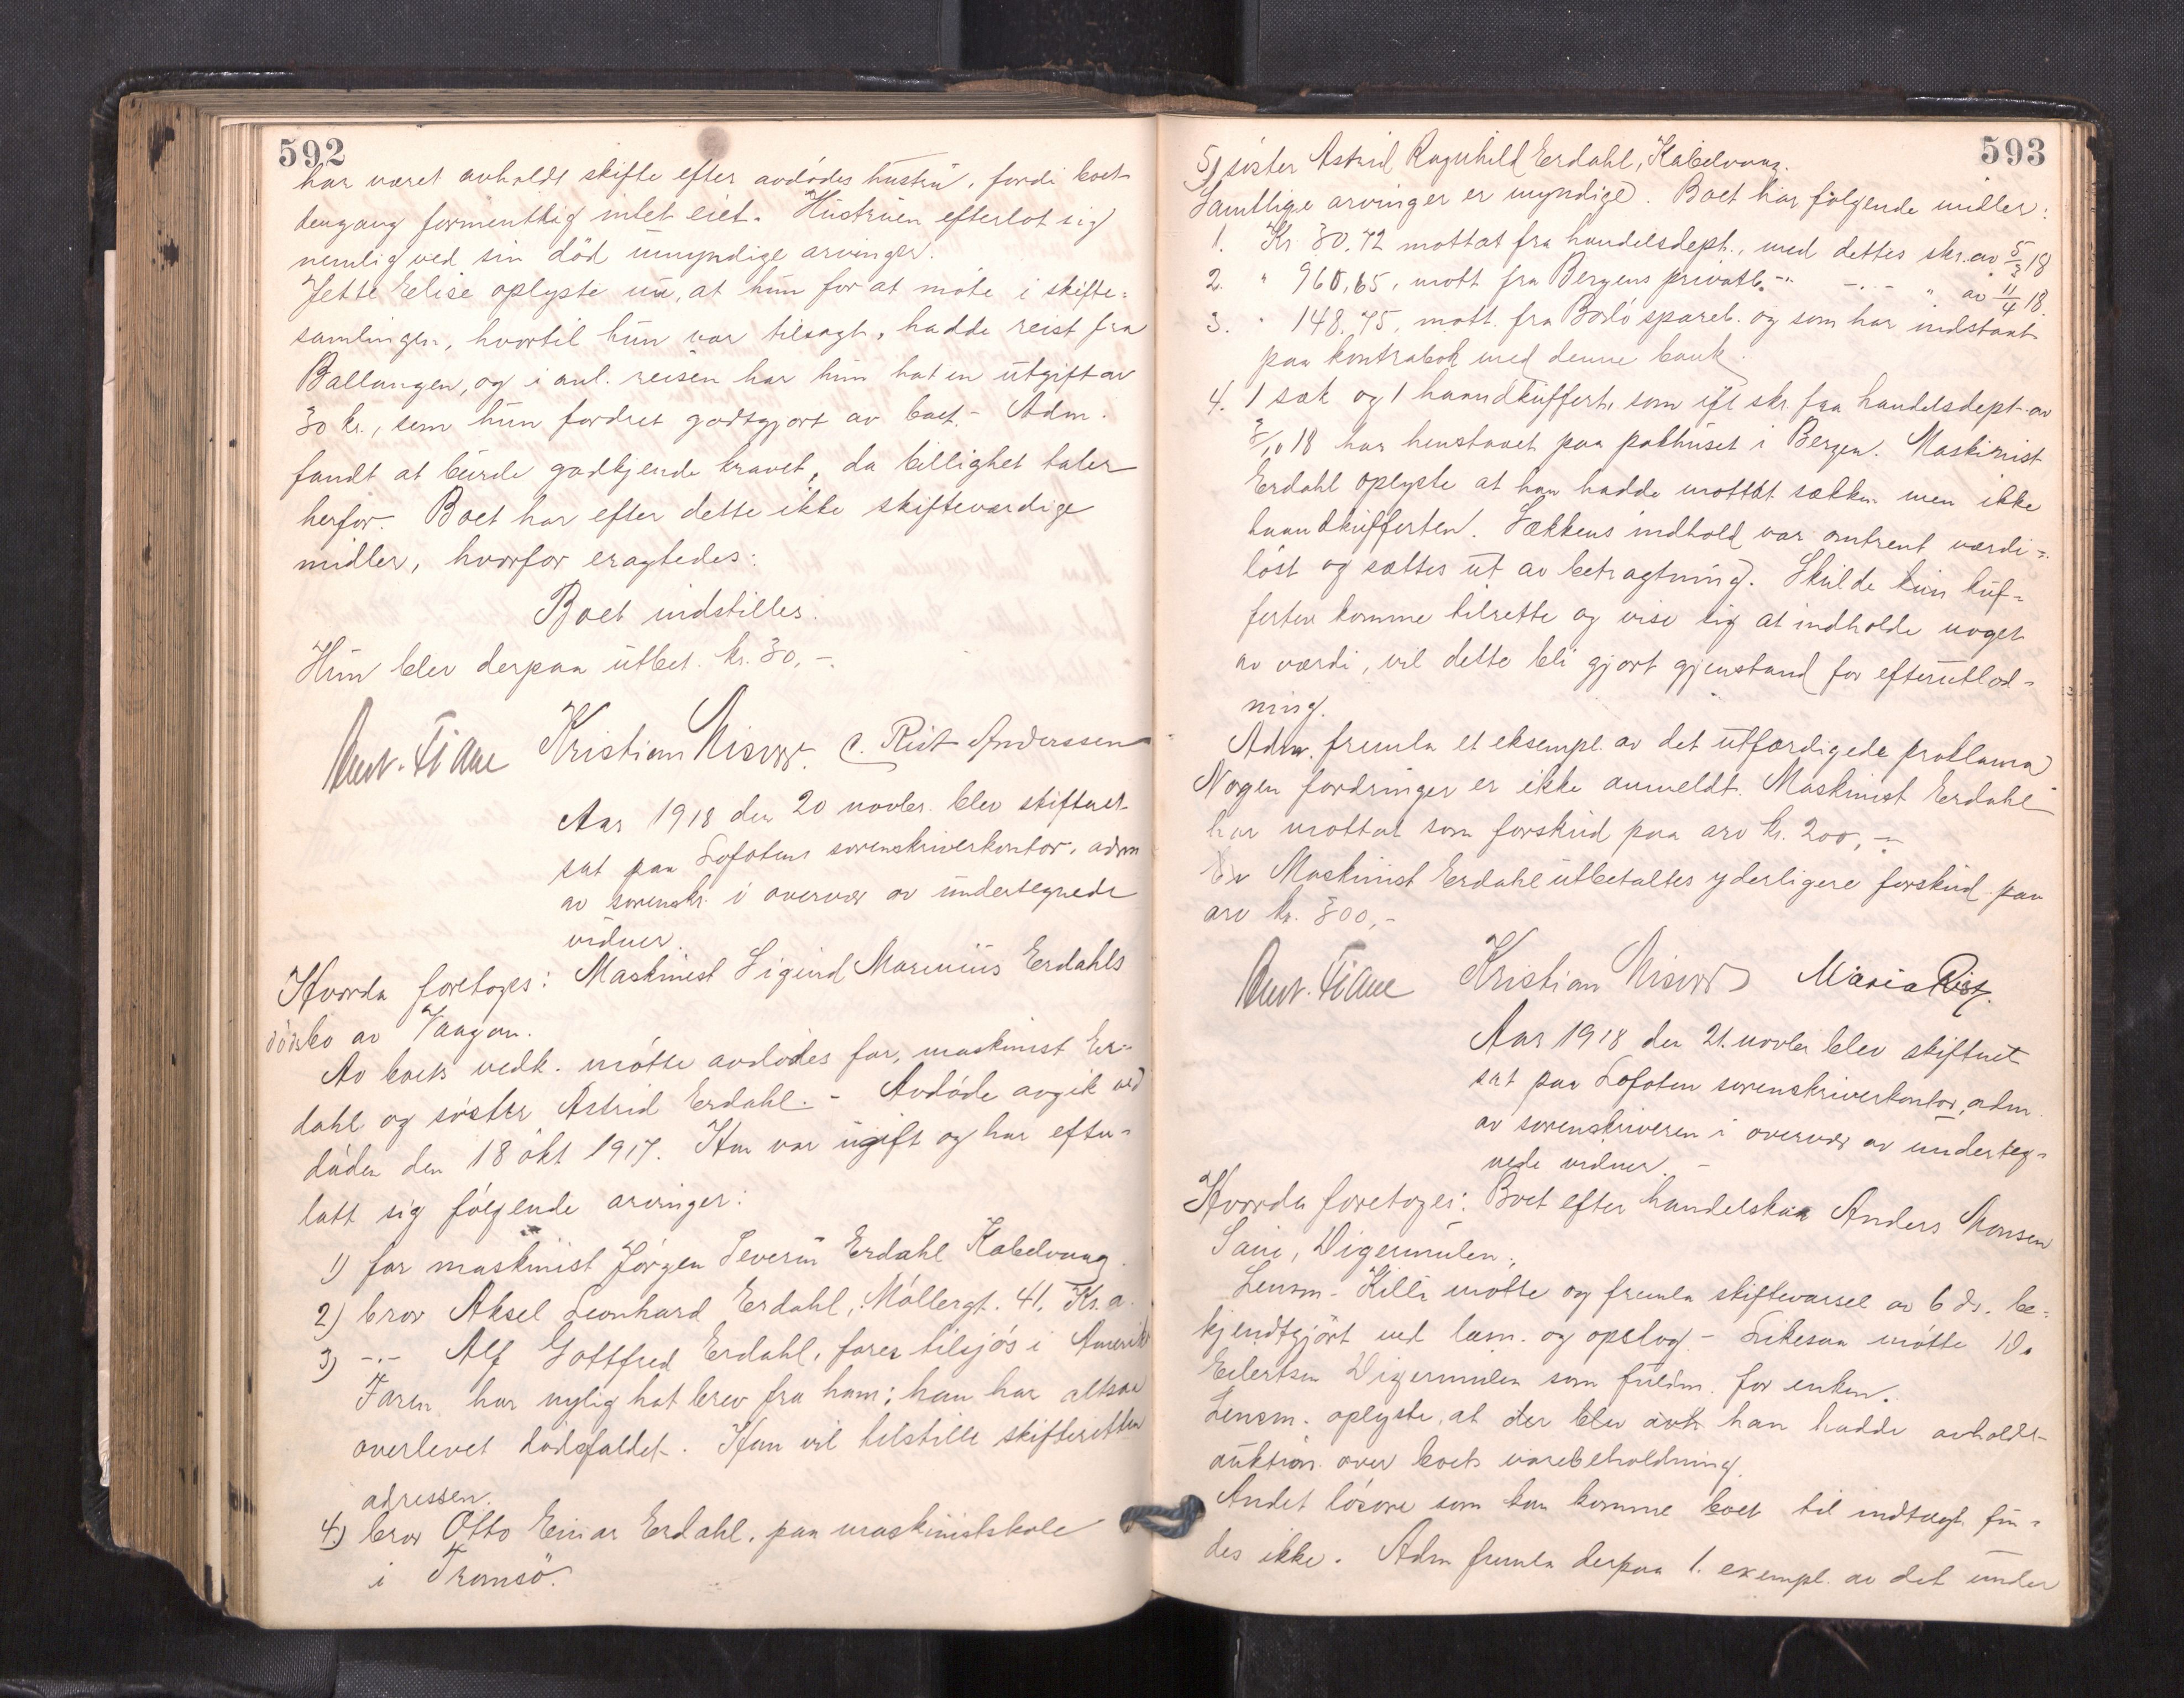 592
har været avholdt skifte efter avdödes hustru, fordi boet
dengang formentlig intet eiet. Hustruen efterlot sig
nemlig ved sin död umyndige arvinger.
Jette Elise oplyste nu, at hun for at möte i skifte=
samlingen, hvortil hun var tilsagt, hadde reist fra
Ballangen, og i anl. reisen har hun hat en utgift av
30 kr., som hun fordret godtgjort av boet. - Adm.
fandt at burde godkjende kravet, da billighet taler
herfor. Boet har efter dette ikke skifteværdige
midler, hvorfor eragtedes:
Boet indstilles.
Hun blev derpaa utbet. kr. 30,-.
Kristian C. Rist Anderssen
Aar 1918 den 20 novbr. blev skifteret
sat paa Lofotens sorenskriverkontor, adm
av sorenskr. i overvær av undertegnede
vidner.
Hvorda foretoges: Maskinist Sigurd Marinius Erdahls
dödsbo av Vaagan.
Av boets vedk. mötte avdödes far, maskinist Er-
dahl og söster Astrid Erdahl. - Avdöde avgik ved
döden den 18 okt 1917. Han var ugift og har efter-
latt sig fölgende arvinger:
1) far maskinist Jörgen Severin Erdahl Kabelvaag.
2) bror Aksel Leonhard Erdahl, Möllergt. 41, Kr.a.
3) -.- Alf Gottfred Erdahl, farer tilsjös i Amerik
Faren har nylig hat brev fra ham; han har altsaa
overlevet dödsfaldet. Han vil tilstille skifteretten
adressen.
4.) bror Otto Einar Erdahl, paa maskinistskole
i Tromsö.
593
5) söster Astrid Ragnhild Erdahl, Kabelvaag.
Samtlige arvinger er myndige. Boet har fölgende midler:
1. Kr 30.72 mottat fra handelsdept., med dettes skr. av 5/3 18
2. " 960,65, mott fra Bergens privatb. -"- -.- " av 11/4 18.
3. " 148.75, mott. fra Bodö spareb. og som har indstaat
paa kontrabok med denne bank.
4. 1 sæk og 1 haandkuffert, som ifl skr. fra handelsdept. av
8/10 18 har henstaaet paa pakhuset i Bergen. Maskinist
Erdahl oplyste at han hadde mottat sækken men ikke
haandkufferten. Sækkens indhold var omtrent værdi=
löst og sættes ut av betragtning. Skulde kuf=
ferten komme tilrette og vise sig at indholde noget
av værdi, vil dette bli gjort gjenstand for efterutlod=
ning.
Adm. fremla et eksempl. av det utfærdigede proklama
Nogen fordringer er ikke anmeldt. Maskinist Erdahl
har mottat som forskud paa arv kr. 200,-
Maskinist Erdahl utbetaltes yderligere forskud paa
arv kr. 300,-
Kristian Maria Rist.
Aar 1918 den 21. novbr blev skifteret
sat paa Lofoten sorenskriverkontor, adm.
av sorenskriveren i overvær av underteg=
nede vidner. -
Hvorda foretoges: Boet efter handelskar Anders Monsen
Digermulen.
Lensm. Killi mötte og fremla skiftevarsel av 6 ds. be=
kjendtgjört ved læsn. og opslag. - Likesaa mötte D.
Eilertsen Digermulen som fuldm. for enken.
Lensm. oplyste, at der blev avh han hadde avholdt
auktion over boets varebeholdning.
Andet lösöre som kan komme boet til indtægt fin=
des ikke. Adm fremla derpaa 1. exempl. av det under